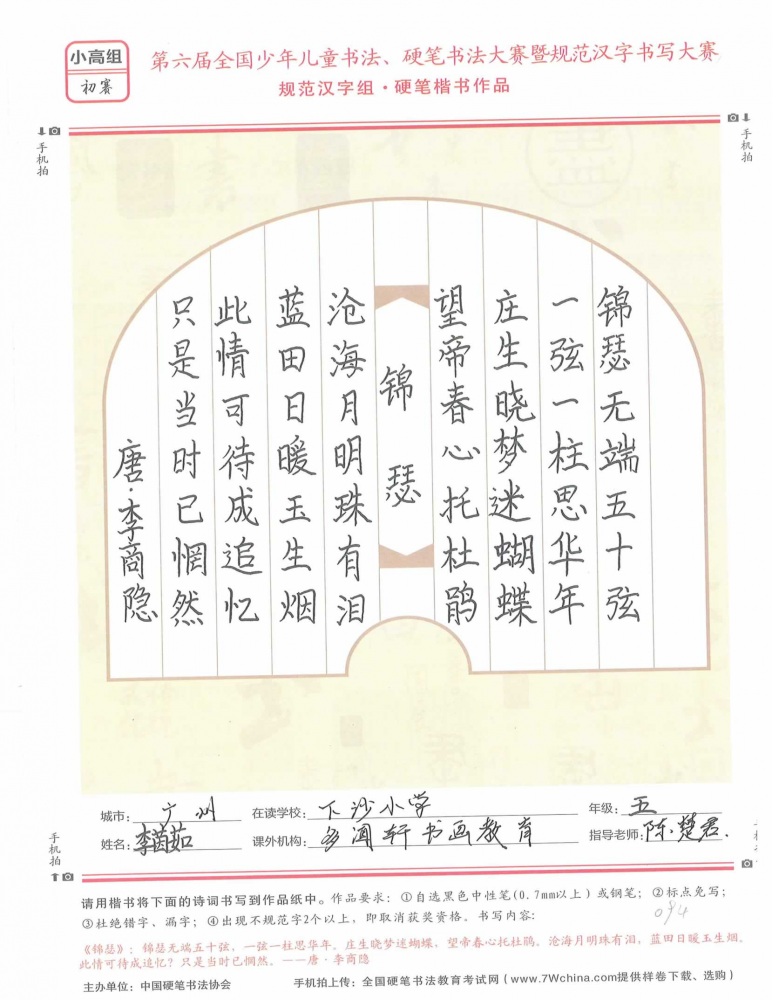 小高组
初赛
第六届全国少年儿童书法、硬笔书法大赛暨规范汉字书写大赛
规范汉字组·硬笔楷书作品
手机拍
手机拍
锦瑟无端五十弦
一弦一柱思华年
庄生晓梦迷蝴蝶
望帝春心托杜鹃
锦瑟
沧海月明珠有泪
蓝田日暖玉生烟
此情可待成追忆
只是当时已惘然
唐·李商隐
城市：广州 在读学校：下沙小学 年级：五
姓名：李茵茹 课外机构：多闻轩书画教育 指导老师：陈楚君.
手机拍
请用楷书将下面的诗词书写到作品纸中。作品要求：①自选黑色中性笔(0.7mm以上)或钢笔；②标点免写；
③杜绝错字、漏字；④出现不规范字2个以上，即取消获奖资格。书写内容：
094
《锦瑟》：锦瑟无端五十弦，一弦一柱思华年。庄生晓梦迷蝴蝶，望帝春心托杜鹃。沧海月明珠有泪，蓝田日暖玉生烟。
此情可待成追忆？只是当时已惘然。——唐·李商隐
主办单位：中国硬笔书法协会 手机拍上传：全国硬笔书法教育考试网（www.7Wchina.com提供样卷下载、选购）